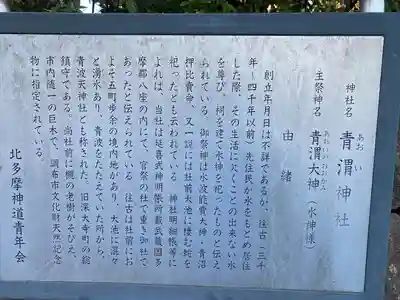 神社名　青渭神社
あおい
主祭神名　青渭大神（水神様）
あおいのおおかみ
由緒
創立年月日は不詳であるが、往古（三千
年〜四千年以前）先住民が水をもとめ居住
した際、その生活に欠くことの出来ない水
を尊び、祠を建て水神を祀ったものと伝え
られている。御祭神は水波能賣大神・青沼
押比賣命、又一説には社前大池に棲む蛇を
祀ったとも云われている。神社明細帳等に
よれば、当社は延喜式神明帳所載武蔵国多
摩郡八座の内にて、官祭の社で重き御社で
あったと伝えられている。往古は社前にお
よそ五町歩余の境内地があり、大池に混々
と湧水あり、青波をたたえていた所から、
青波天神社とも称された。旧深大寺町の総
鎮守である。当社前に欅の老樹がそびえ、
市内随一の巨木で、調布市文化財天然記念
物に指定されている。
北多摩神道青年会